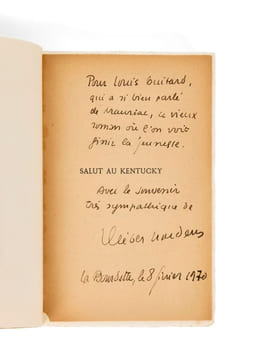 Pour Louis Guitard,
qui a si bien parlé
de Mauriac, ce vieux
roman où l'on voit
finir la jeunesse.
SALUT AU KENTUCKY
Avec le souvenir
très sympathique de
Kléber Haedens
La Bourdette, le 8 février 1970